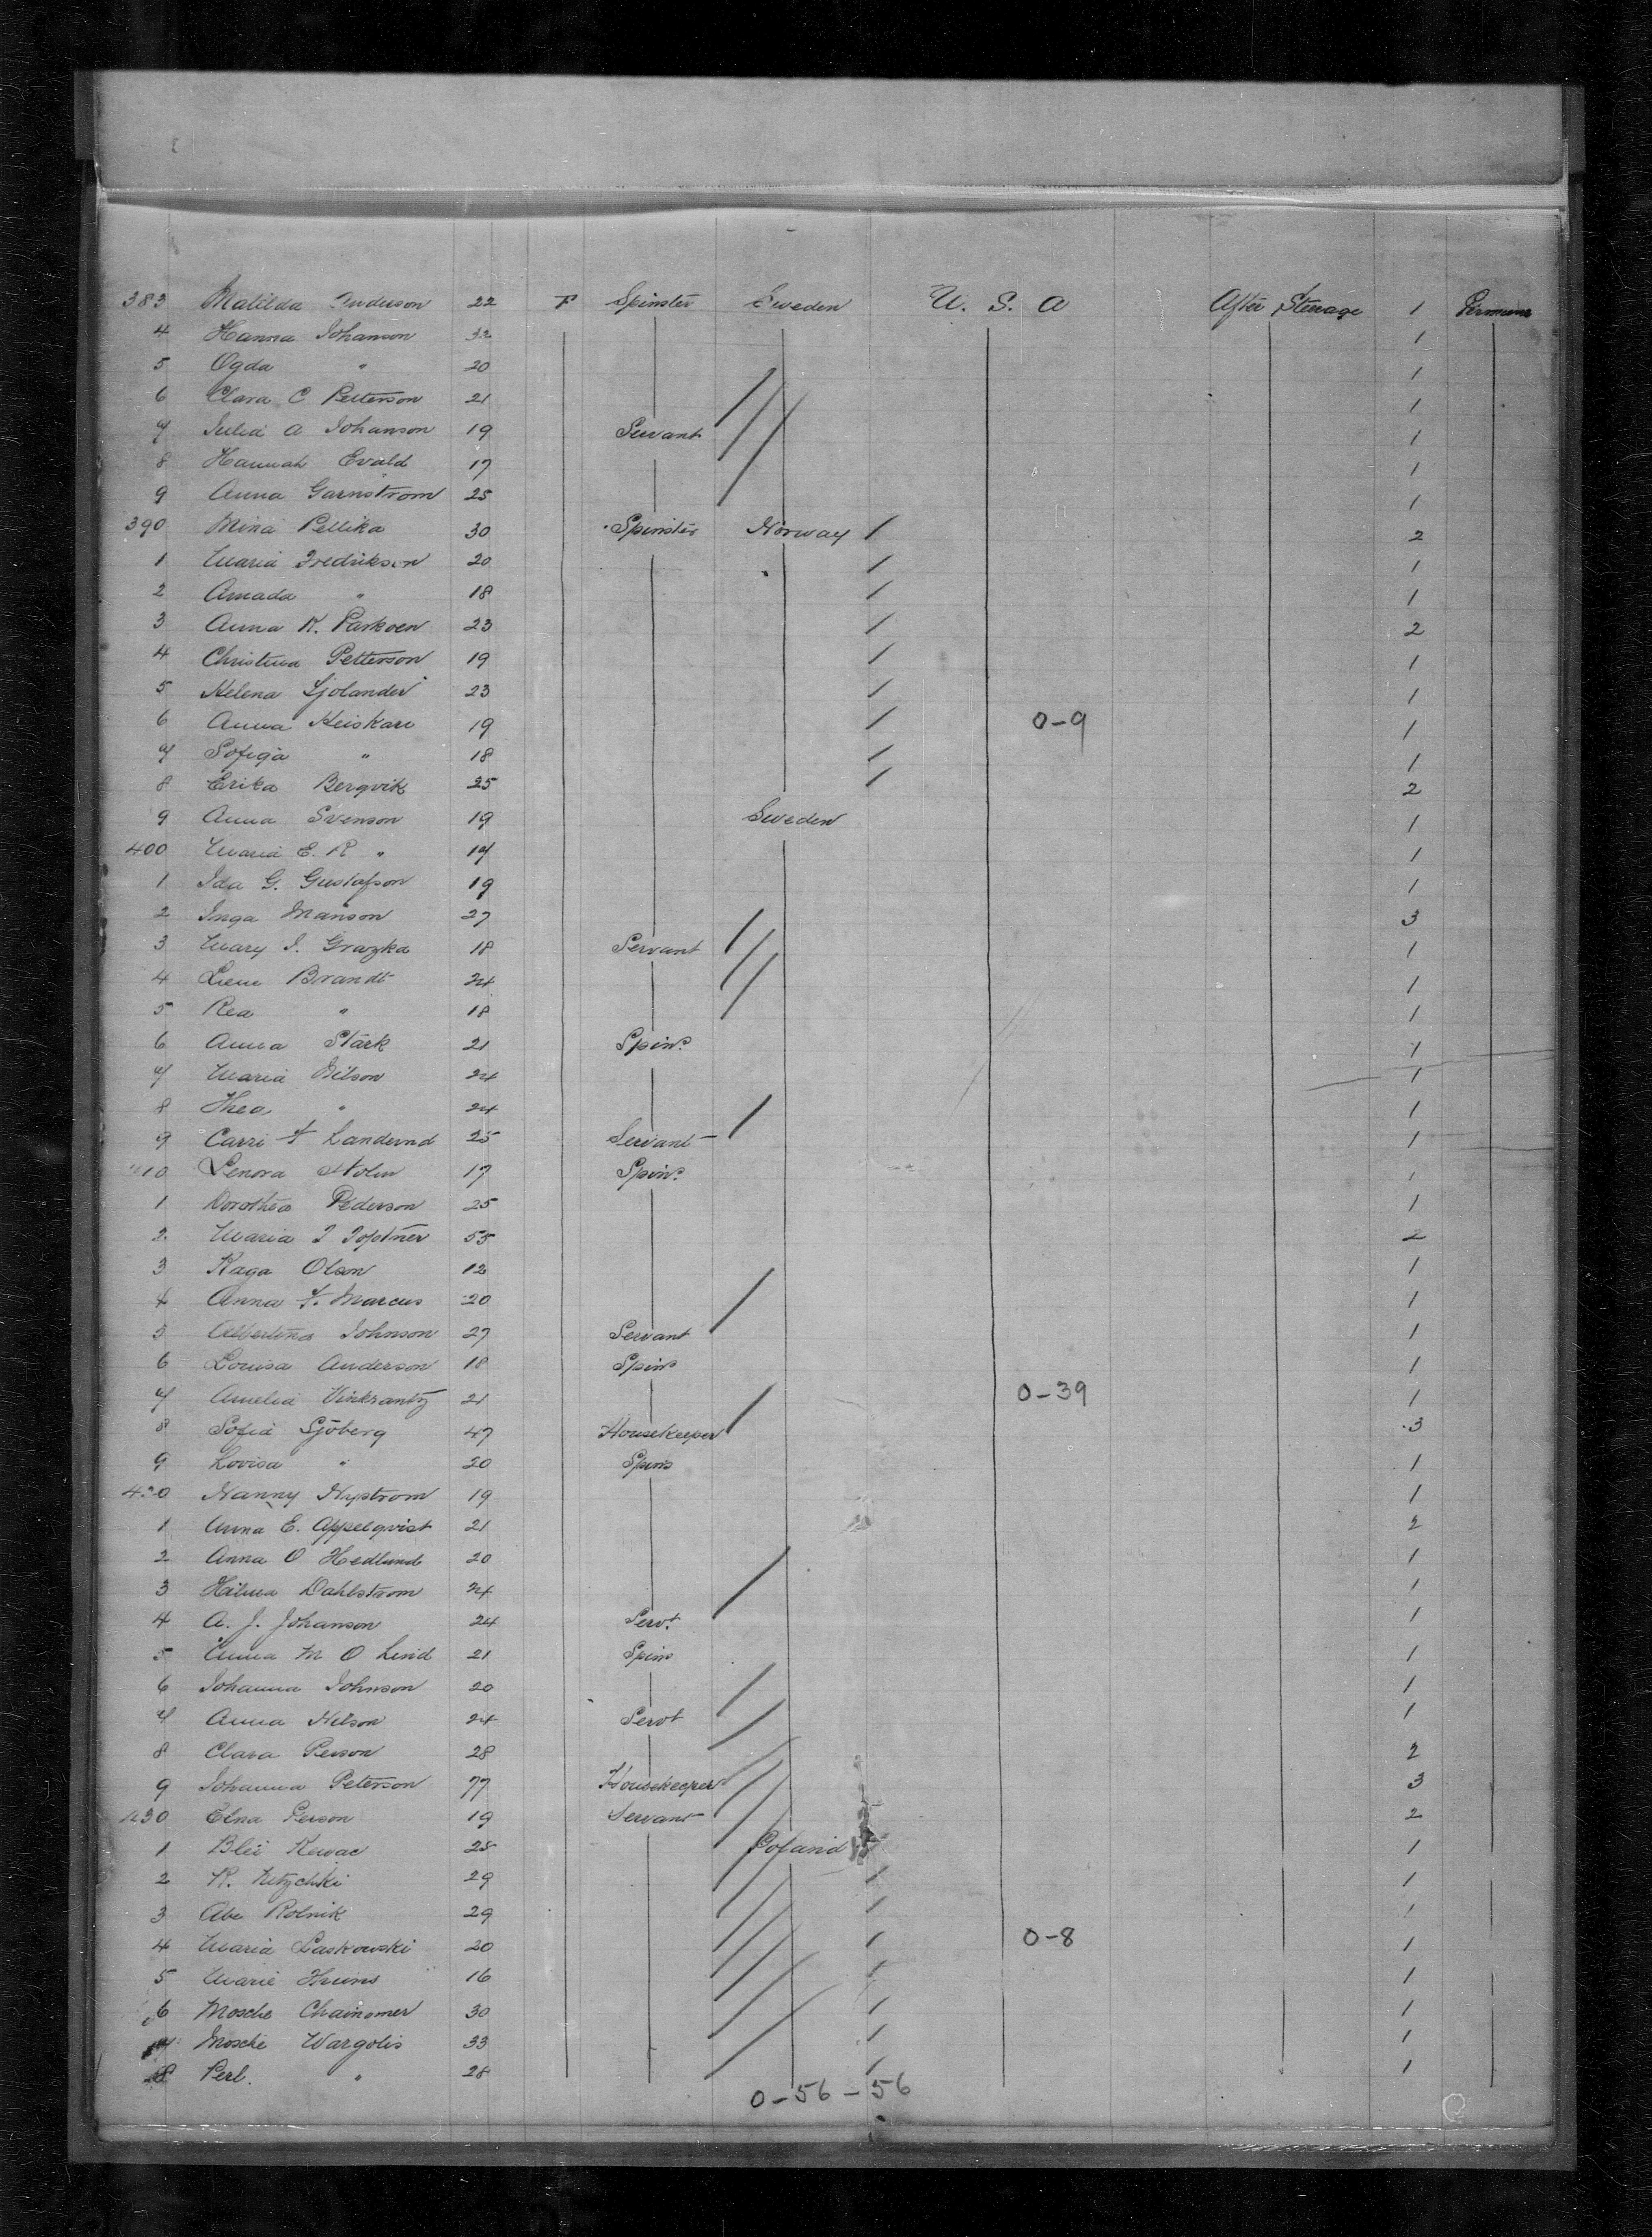 383 Matilda Anderson 22 F Spinster Sweden U. S. A After Steerage 1
4 Hanna Johanson 32 1
5 Ogda " 20 1
6 Clara C Petterson 21 1
7 Julia A Johanson 19 Servant 1
8 Hannah Evald 17 1
9 Anna Garnstrom 25 1
390 Mina Pellika 30 Spinster Norway 2
1 Maria Fredrikson 20 1
2 Amada " 18 1
3 Anna K. Parkoen 23 2
4 Christina Petterson 19 1
5 Helena Sjolander 23 1
6 Anna Heiskari 19 0-9 1
7 Sofiga " 18 1
8 Erika Bergvik 25 2
9 Anna Svenson 19 Sweden 1
400 Maria E. R " 17 1
1 Ida G. Gustafson 19 1
2 Inga Manson 27 3
3 Mary I. Grazka 18 Servant 1
4 Brandt 24 1
5 Rea " 18 1
6 Anna Stark 21 Spins 1
7 Maria Nilson 24 1
8 Thea " 24 1
9 Carri 25 Servant 1
410 Lenora Holm 17 Spins 1
1 Dorothea Pederson 25 1
2 Maria 55 2
3 Raga Olson 12 1
4 Anna F. Marcus 20 1
5 Albertina Johnson 27 Servant 1
6 Louisa Anderson 18 Spins 1
7 Amelia Vinkrantz 21 0-39 1
8 Sofia Sjöberg 47 Housekeeper 3
9 Lovisa " 20 Spins 1
420 Nanny Nystrom 19 1
1 Anna E. Appelqvist 21 2
2 Anna O Hedlund 20 1
3 Hilma Dahlstrom 24 1
4 A. J. Johanson 24 Servt 1
5 Anna M O Lind 21 Spins 1
6 Johanna Johnson 20 1
7 Anna Nilson 24 Servt 1
8 Clara Person 28 2
9 Johanna Peterson 77 Housekeeper 3
430 Elna Person 19 Servant 2
1 Blei 25 Poland 1
2 R. 29 1
3 Abe Rolnik 29 1
4 Maria Laskowski 20 0-8 1
5 Marie 16 1
6 Mosche Chainomer 30 1
7 Mosche Wargolis 33 1
8 Perl. " 28 1
0-56-56